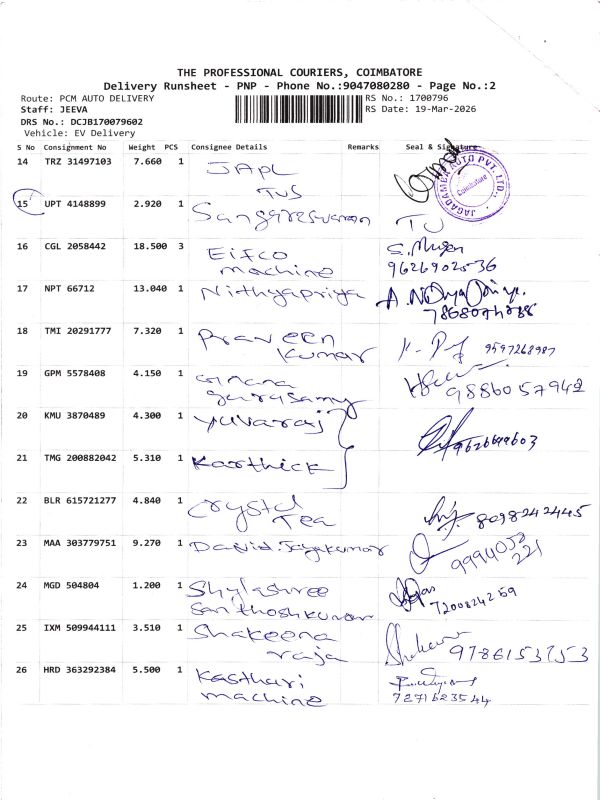 THE PROFESSIONAL COURIERS, COIMBATORE
Delivery Runsheet - PNP - Phone No.:9047080280 - Page No.:2
Route: PCM AUTO DELIVERY
RS No.: 1700796
Staff: JEEVA
RS Date: 19-Mar-2026
DRS No.: DCJB170079602
Vehicle: EV Delivery
S No Consignment No Weight PCS Consignee Details Remarks Seal & Signature
14 TRZ 31497103 7.660 1 JAPL
TVS
JAGADAMBA AUTO PVT. LTD.
Coimbatore
15 UPT 4148899 2.920 1 Sangareswaran
16 CGL 2058442 18.500 3 Eifco
machine
S. Mugan
9626902536
17 NPT 66712 13.040 1 Nithyapriya
18 TMI 20291777 7.320 1 Praveen
Kumar
9597268987
19 GPM 5578408 4.150 1 Gnana
gurusamy
9886057942
20 KMU 3870489 4.300 1 Yuvaraj
9626949603
21 TMG 200882042 5.310 1 Karthick
22 BLR 615721277 4.840 1 Crystal
Tea
8098242445
23 MAA 303779751 9.270 1 David. Jayakumar
9994052
221
24 MGD 504804 1.200 1 Shylashree
Santhoshkumar
7200824259
25 IXM 509944111 3.510 1 Shakeena
raja
9786153753
26 HRD 363292384 5.500 1 Kasthuri
machine
7271623544